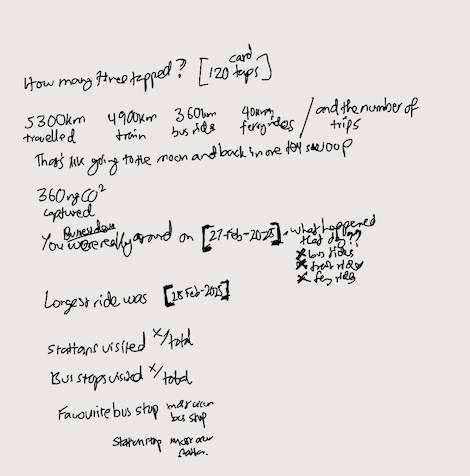 How many times tapped? [120 card taps]
5300km travelled 4900km train 360km bus ride 40km ferry rides / and the number of trips
That's like going to the moon and back in one fell swoop
360mg CO²
captured
You were really around on [27-Feb-2025], what happened that day??
x bus rides
x ferry rides
Longest ride was [28 Feb-2025]
Stations visited x/total
Bus stops visited x/total
Favourite bus stop most occur bus stop
Station stop most occur station.